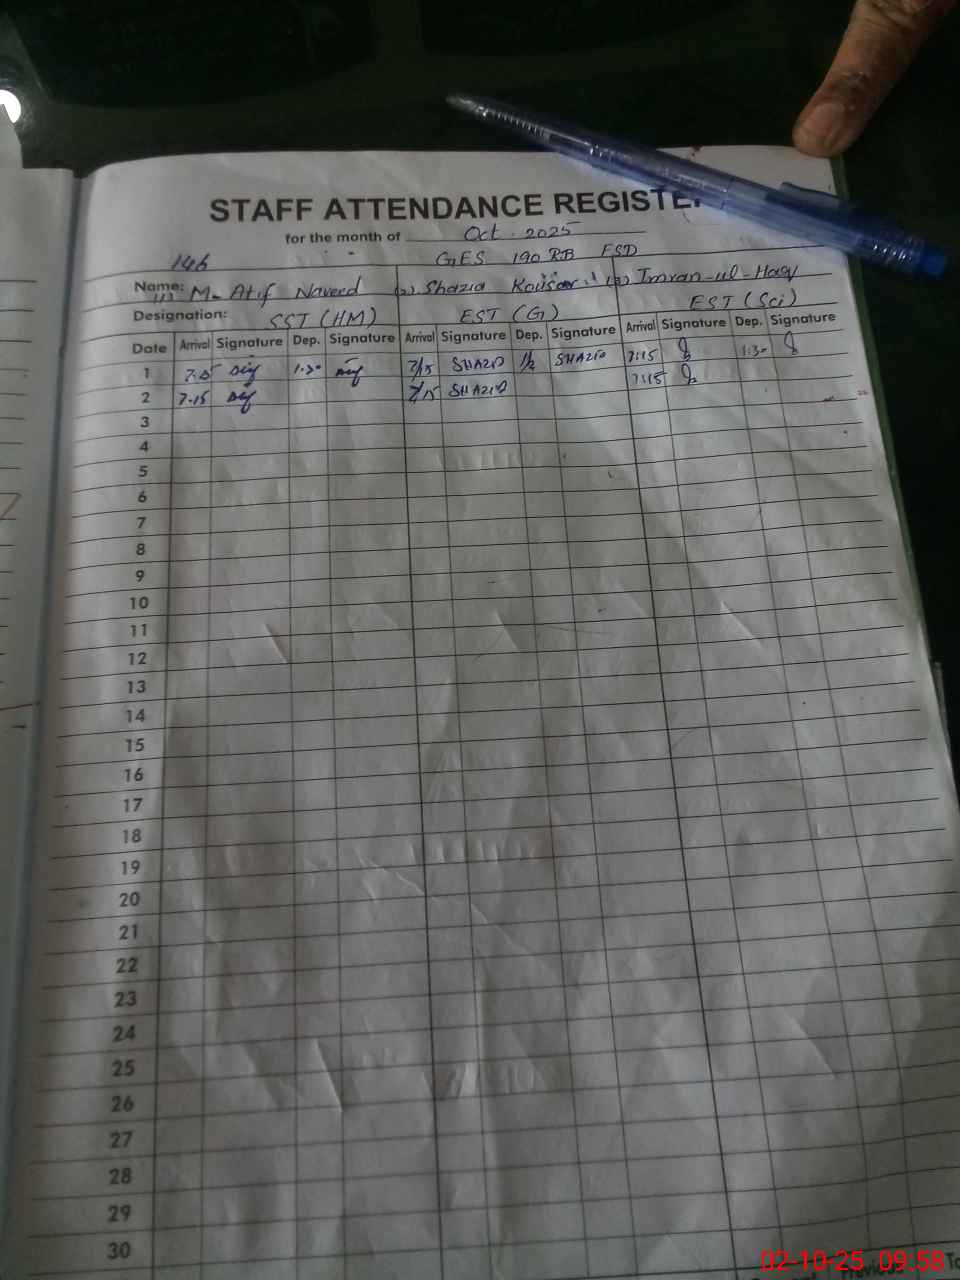 STAFF ATTENDANCE REGISTE
for the month of Oct. 2025
146 GES 190 RB FSD
Name: (1) M. Atif Naveed (2) Shazia Kousar (3) Imran-ul-Haq
Designation: SST (HM) EST (G) EST (Sci)
Date Arrival Signature Dep. Signature Arrival Signature Dep. Signature Arrival Signature Dep. Signature
1 1.30 7/15 SHAZIA 1/2 SHAZIA 7:15 1:30
2 7.15 7/15 SHAZIA 7:15
3
4
5
6
7
8
9
10
11
12
13
14
15
16
17
18
19
20
21
22
23
24
25
26
27
28
29
30
02-10-25 09:58